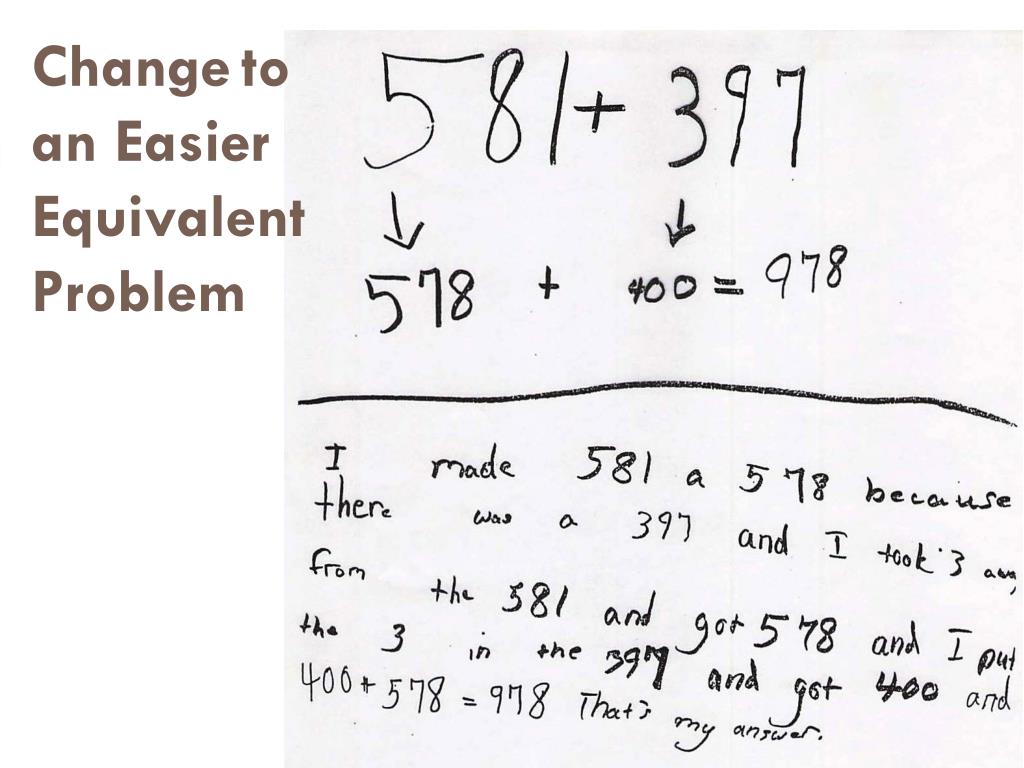 Change to
an Easier
Equivalent
Problem
581 + 397
↓ ↓
578 + 400 = 978
I made 581 a 578 because
there was a 397 and I took 3
from the 581 and got 578 and I put
the 3 in the 397 and got 400 and
400 + 578 = 978 That's my answer.